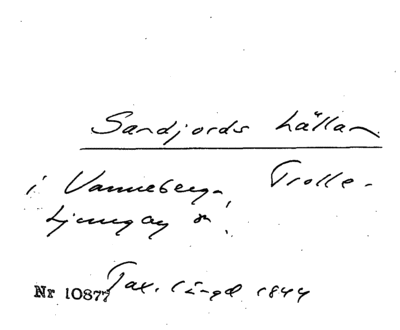 Sandjords hällan
i Vanneberga, Trolle-
Ljungby sn.
Nr 10877 Tax. längd 1844